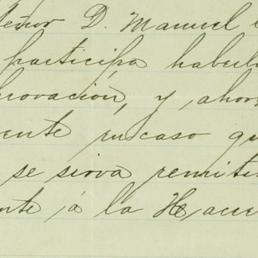 eñor D. Manuel
participa haber
rovación, y, ahor
ente en caso qu
se sirva remiti
nte á la Hacie